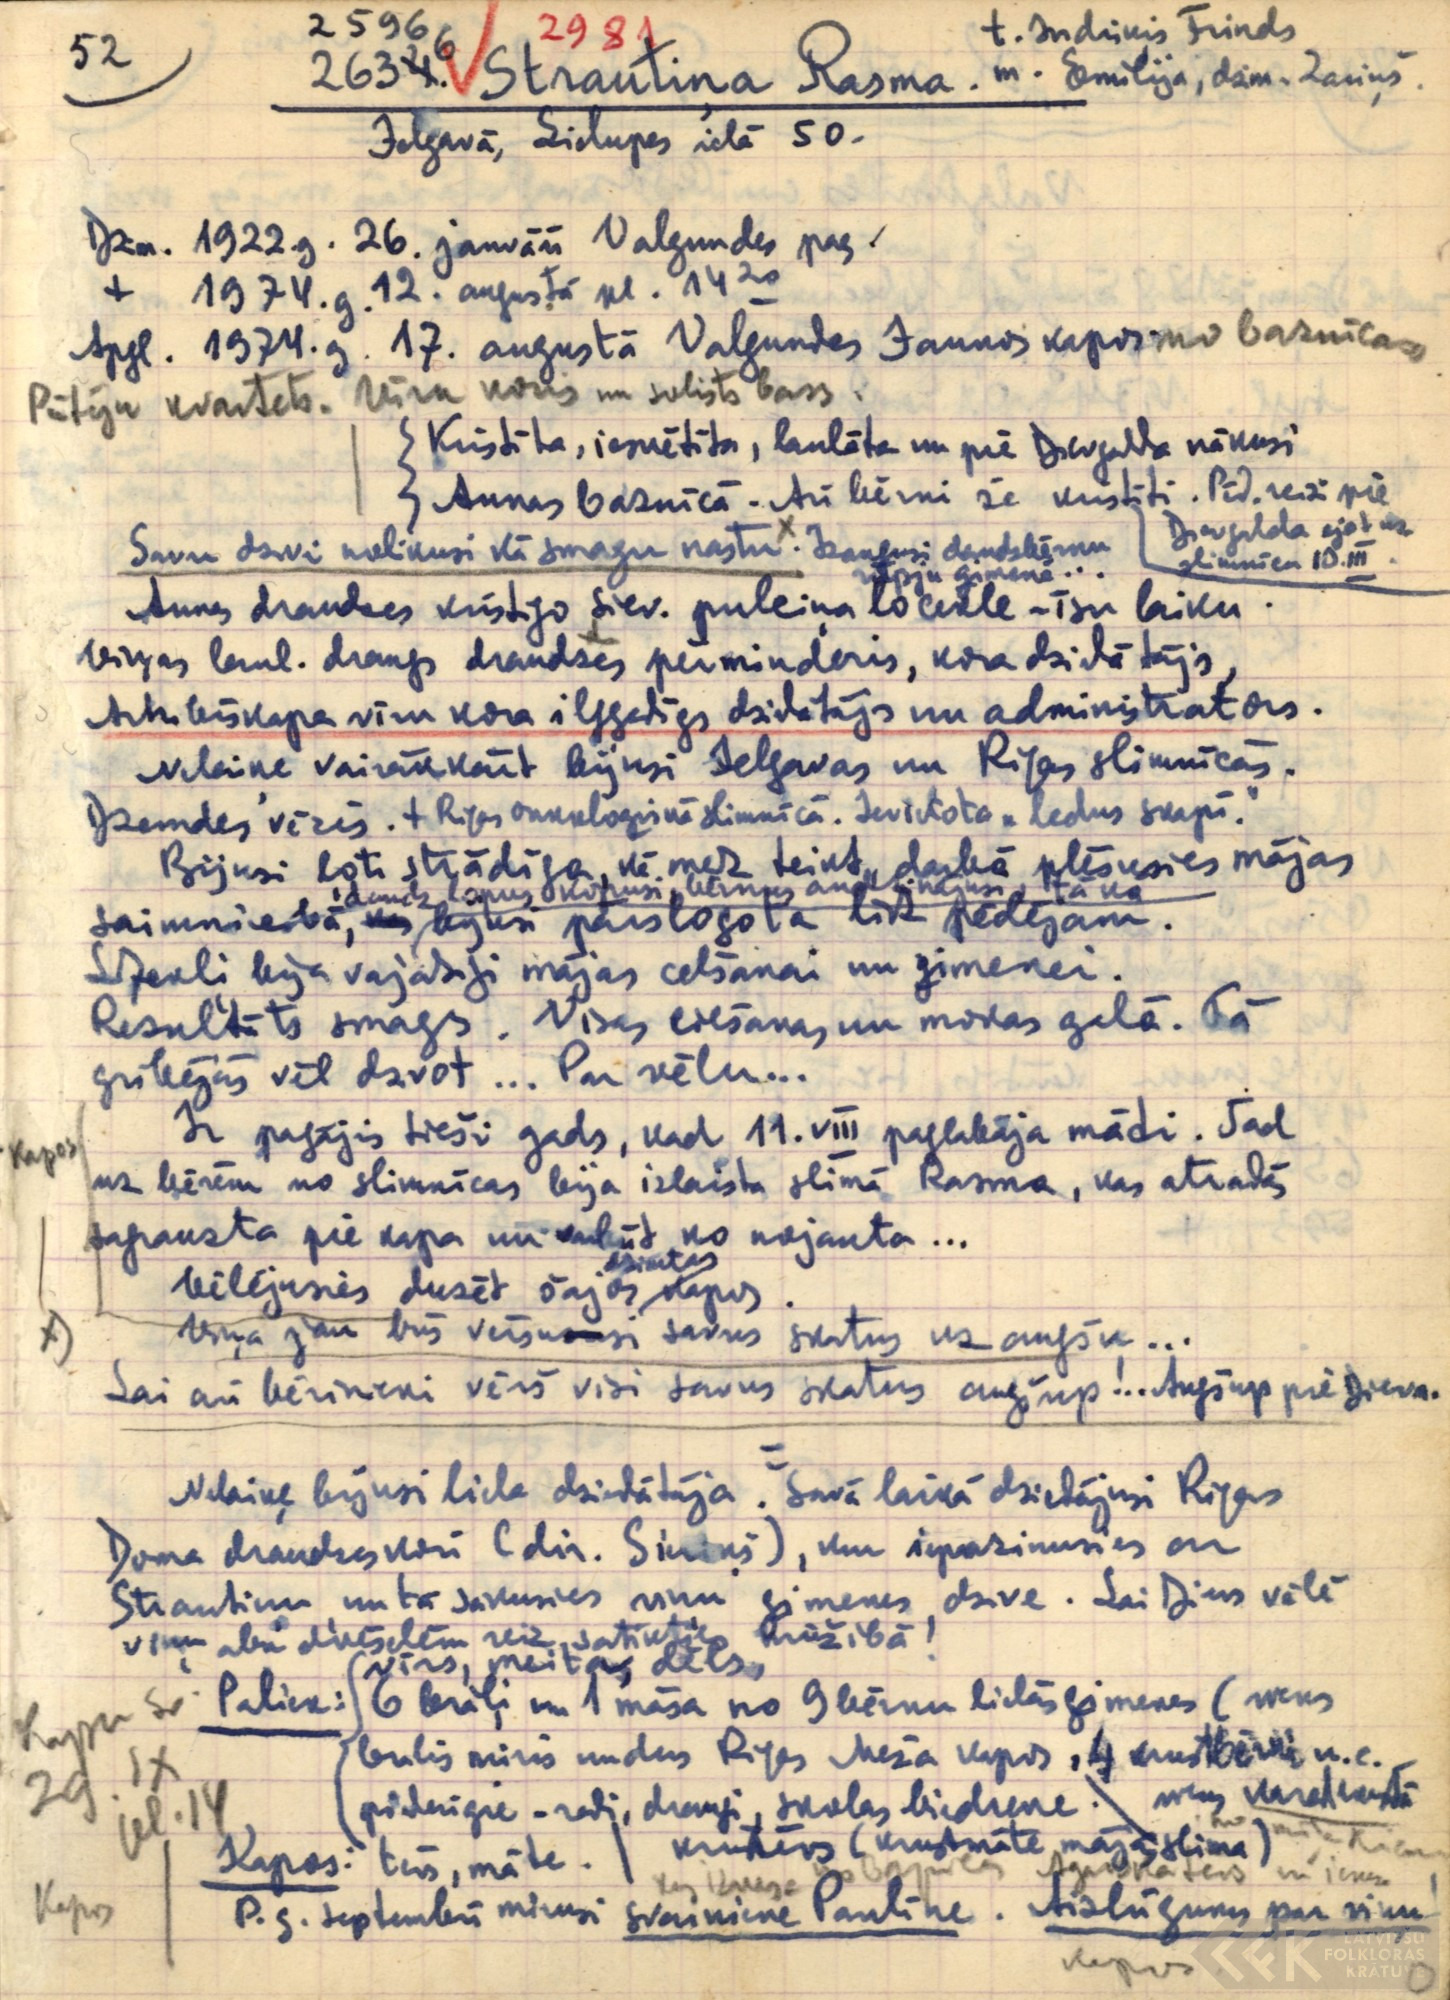 52
2596
26346.
2981
Strautiņa Rasma.
t. Indriķis Frinds
m. Emīlija, dzim. Zariņš.
Jelgavā, Lielupes ielā 50.
Dzm. 1922.g. 26. janvārī Valgundes pag.
+ 1974.g. 12. augustā pl. 14 20
Apgl. 1974.g. 17. augustā Valgundes Jaunos kapos no baznīcas
Pūtēju kvartets. Vīru koris un solists bass.
Kristīta, iesvētīta, laulāta un pie Dievgalda nākusi
Annas baznīcā. Arī bērni še kristīti. Pēd. reizi pie
Dievgalda ejot uz
slimnīcu 10.III.
Savu dzīvi nolikusi kā smagu nastu. x Izaugusi daudzbērnu
rūpju ģimenē...
Annas draudzes kristīgo siev. pulciņa locekle - īsu laiku.
Viņas laul. draugs draudzes pērminderis, kora dziedātājs,
Arhibīskapa vīru kora ilggadīgs dziedātājs un administrators.
Nelaiķe vairākkārt bijusi Jelgavas un Rīgas slimnīcās.
Dzemdes vēzis. + Rīgas onkoloģiskā slimnīcā. Ievietota "ledus skapī."
Bijusi ļoti strādīga, kā mēdz teikt, "darbā plēsusies mājas
daudz lopus kopusi, bērnus audzinājusi, tā ka
saimniecībā, bijusi pārslogota līdz pēdējam.
Līdzekļi bija vajadzīgi mājas celšanai un ģimenei.
Rezultāts smags. Visas ciešanas un mokas galā. Tā
gribējās vēl dzīvot... Par vēlu...
Kapos
Ir pagājis tieši gads, kad 11.VIII paglabāja māti. Tad
uz bērēm no slimnīcas bija izlaista slimā Rasma, kas atradās
sagrauzta pie kapa un varbūt ko nojauta...
dzimtas
Vēlējusies dusēt šajos kapos.
x)
Viņa jau būs vērsusi savus skatus uz augšu...
Lai arī bērinieki vērš visi savus skatus augšup!.. Augšup pie Dieva.
Nelaiķe bijusi liela dziedātāja. Savā laikā dziedājusi Rīgas
Doma draudzes korī (dir. ), kur iepazinusies ar
Strautiņu un tā sākusies viņu ģimenes dzīve. Lai Dievs vēlē
viņu abu dvēselēm reiz satikties mūžībā!
vīrs, meita, dēls,
Paliek: 6 brāļi un 1 māsa no 9 bērnu lielās ģimenes (viens
brālis miris un dus Rīgas Meža kapos, 4 krustbērni u.c.
piederīgie - radi, draugi, skolas biedrene.
viens karadienestā
krusttēvs (krustmāte mājās slima)
Kapu sv.
29. IX
pl. 14
Kapos: tēvs, māte.
Kapos
P.g. septembrī mirusi svainiene Paulīne. Aizlūgums par viņu
kapos
LATVIEŠU
FOLKLORAS
KRĀTUVE